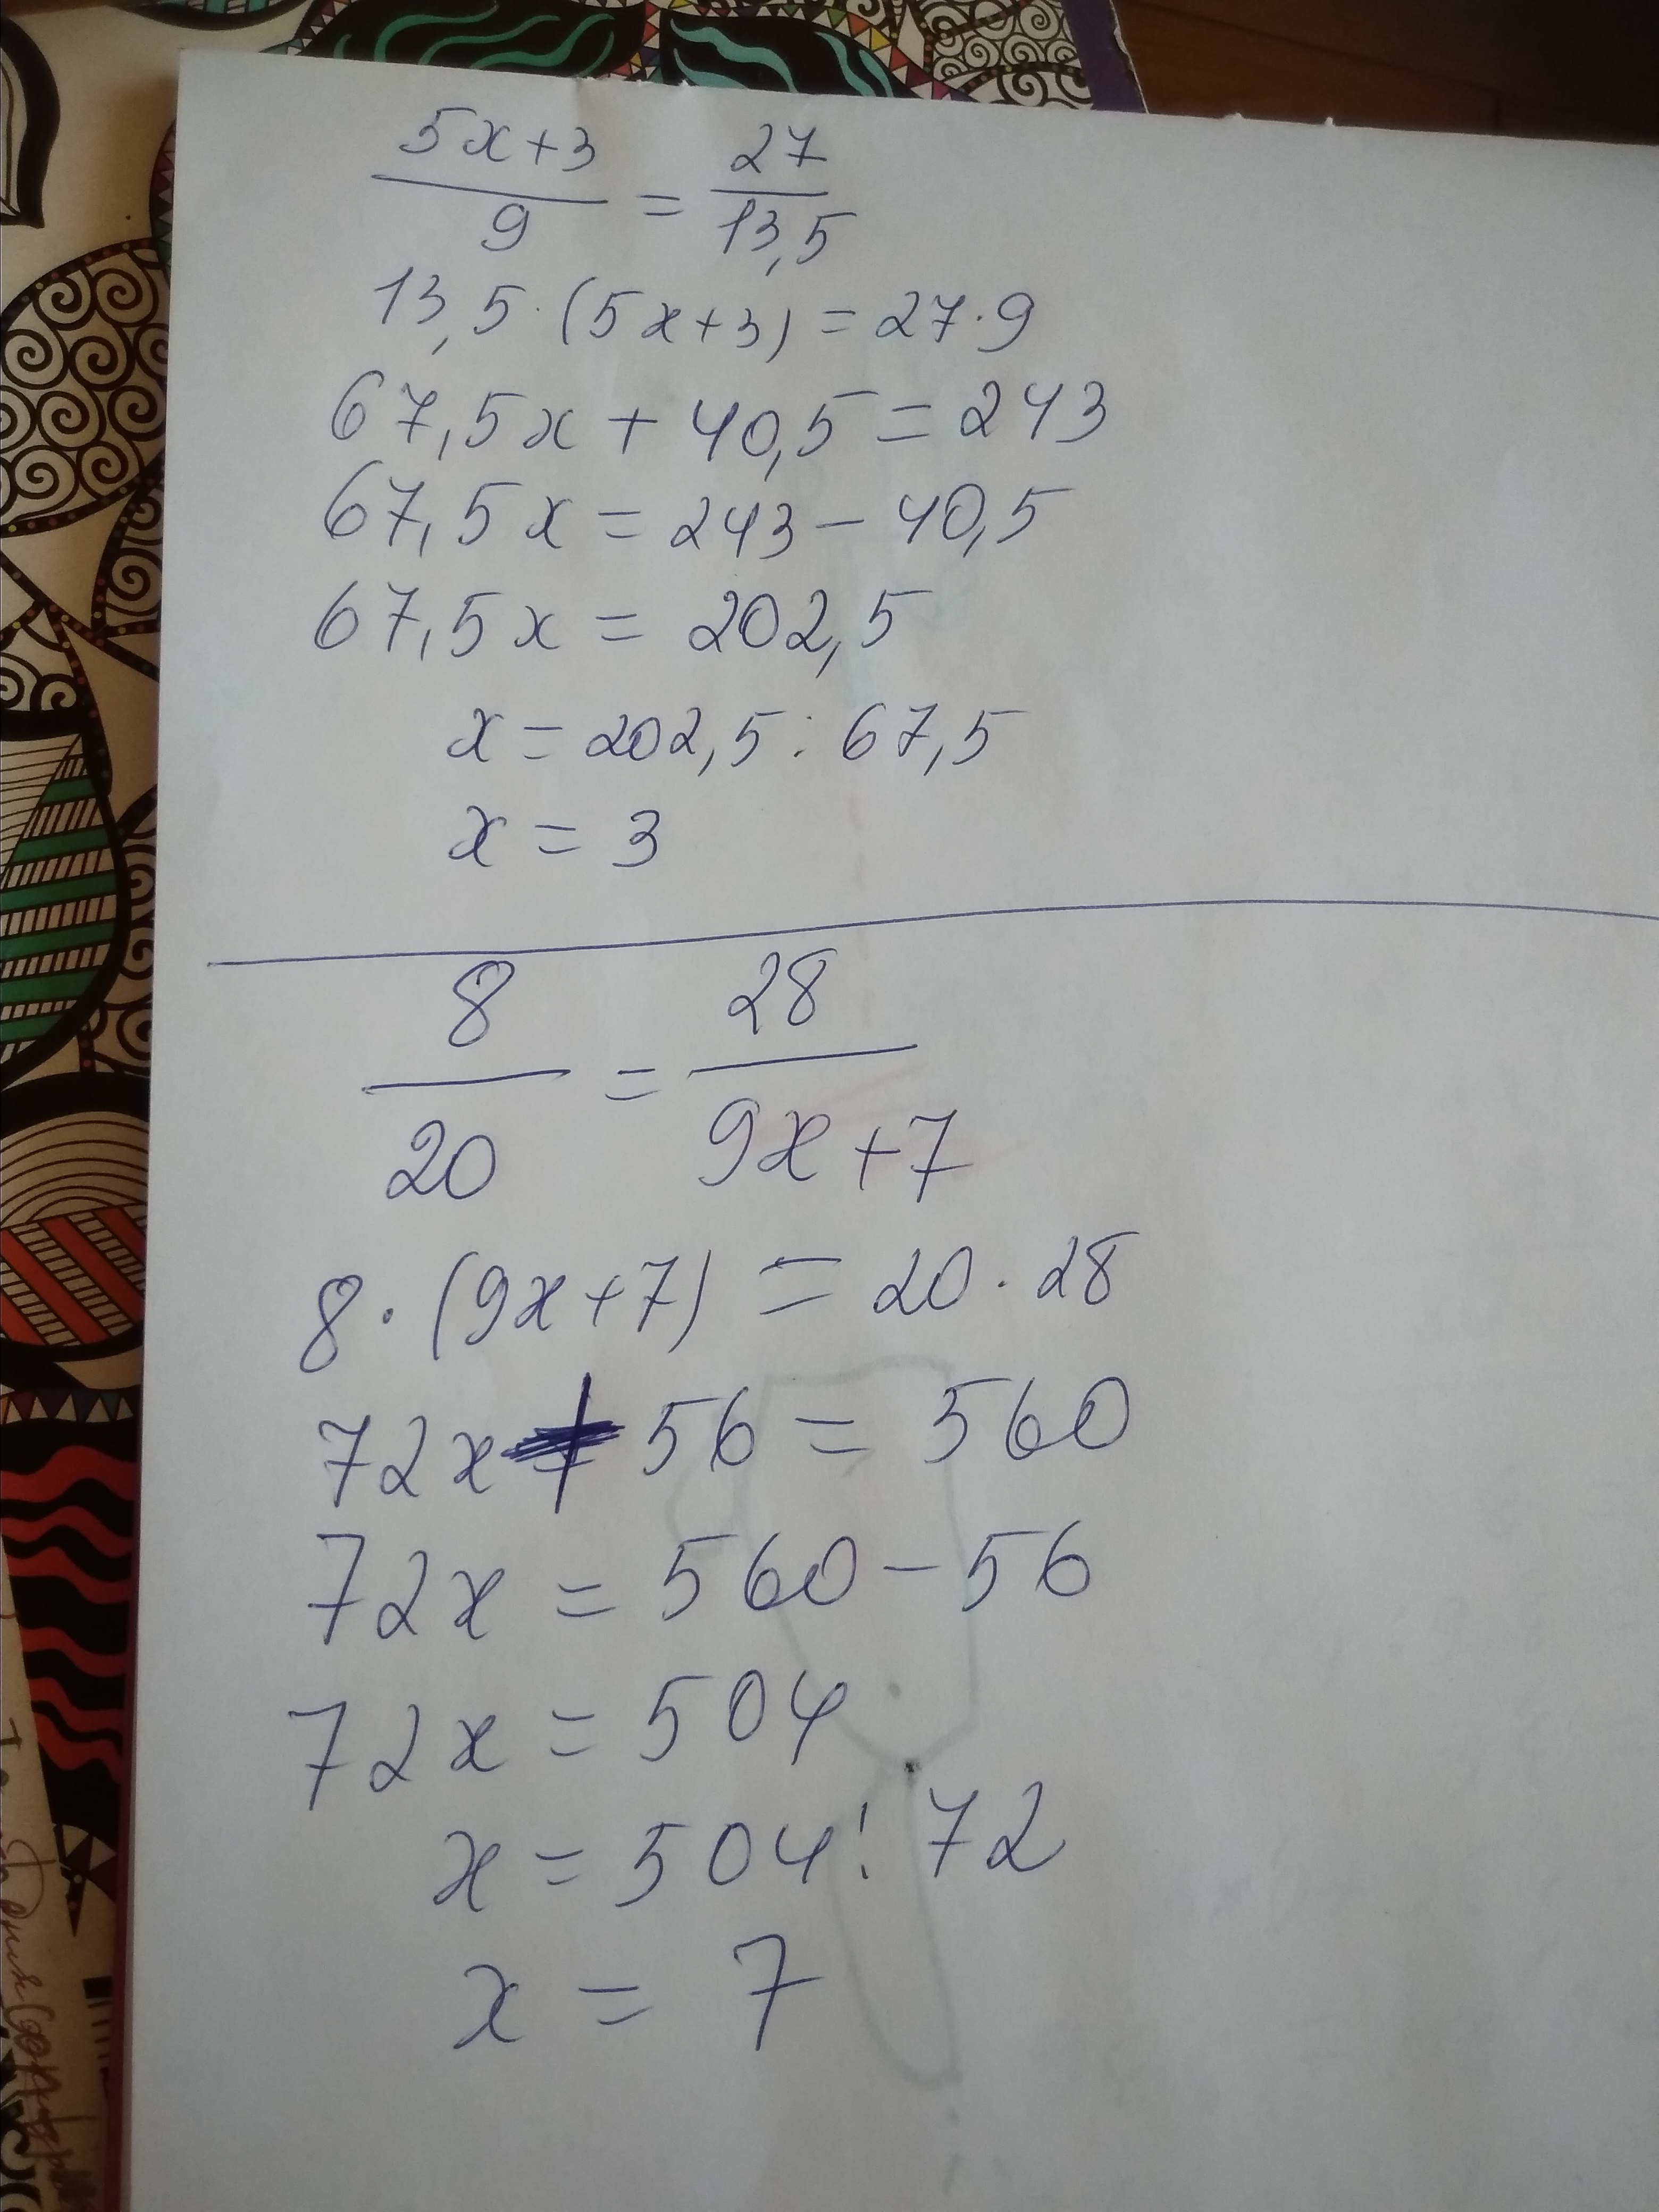 5x+3 / 9 = 27 / 13,5
13,5·(5x+3)=27·9
67,5x+40,5=243
67,5x=243-40,5
67,5x=202,5
x=202,5:67,5
x=3
8 / 20 = 28 / 9x+7
8·(9x+7)=20·28
72x+56=560
72x=560-56
72x=504
x=504:72
x=7